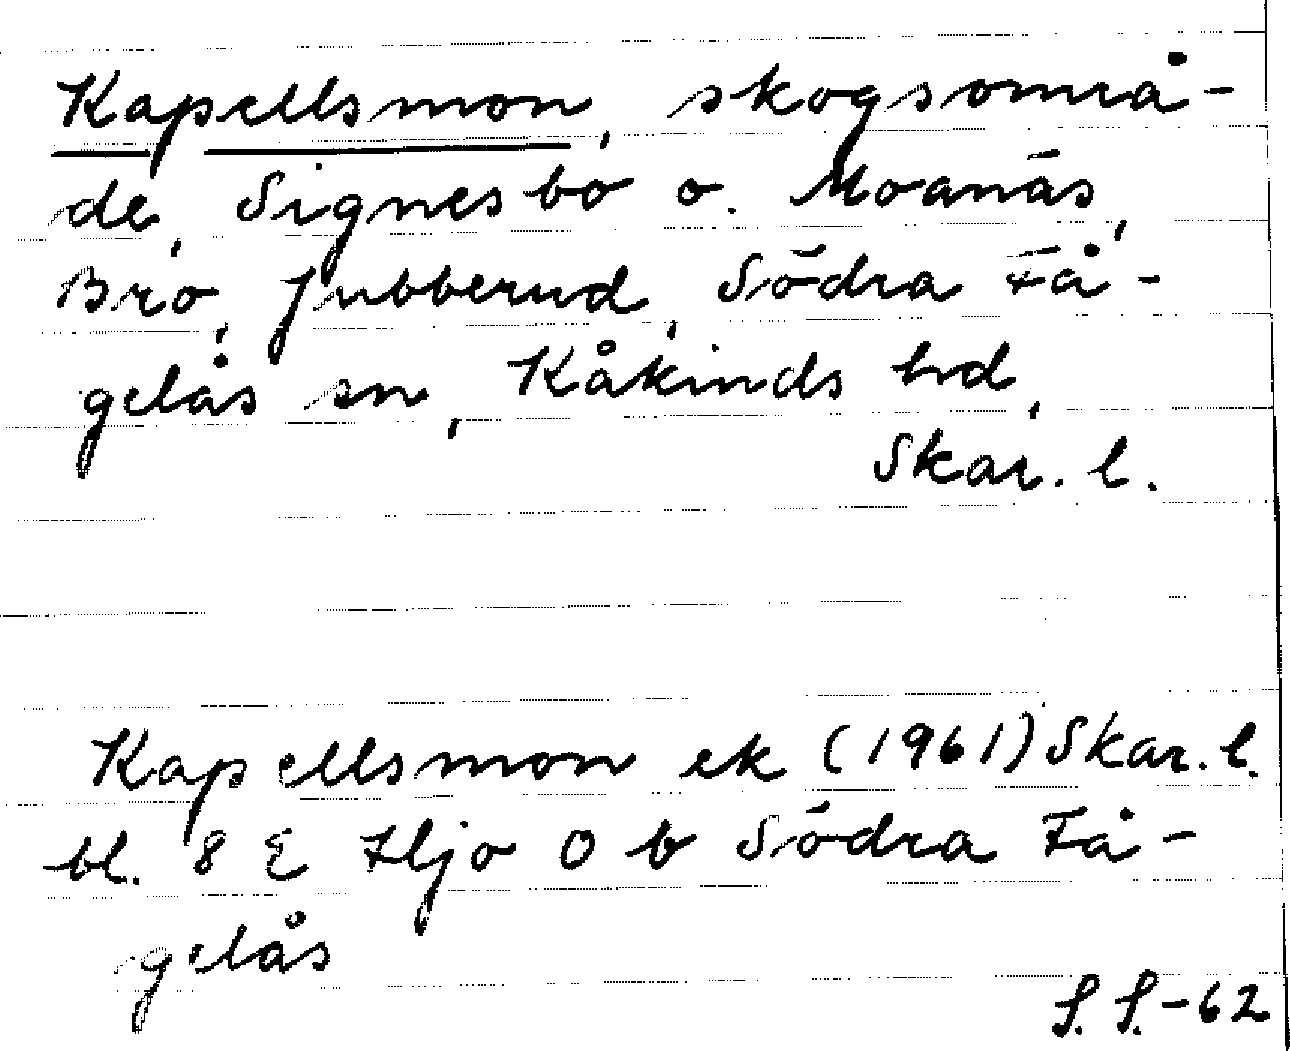 Kapellsmon, skogsområ-
de, Signesbo o. Moanäs,
Bro, Jubberud, Södra Få-
gelås sn, Kåkinds hd,
Skar. l.
Kapellsmon ek (1961) Skar. l.
bl. 8 E Hjo 0 b Södra Få-
gelås
S. S. -62